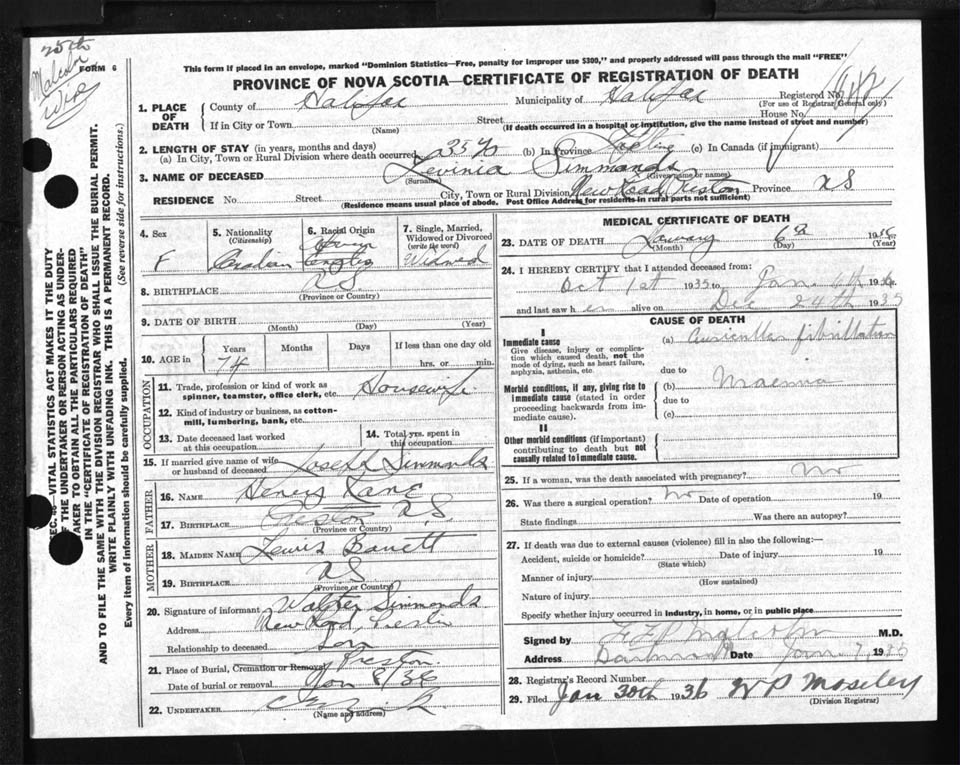 25th
Malcolm
Wife
FORM 6
This form if placed in an envelope, marked "Dominion Statistics—Free, penalty for improper use $300," and properly addressed will pass through the mail "FREE"
PROVINCE OF NOVA SCOTIA—CERTIFICATE OF REGISTRATION OF DEATH
1. PLACE OF DEATH
County of Halifax Municipality of Halifax Registered No.
(For use of Registrar General only)
If in City or Town Street House No.
(Name) (If death occurred in a hospital or institution, give the name instead of street and number)
2. LENGTH OF STAY (in years, months and days)
(a) In City, Town or Rural Division where death occurred 35 (b) In Province (c) In Canada (if immigrant)
3. NAME OF DECEASED Levinia Simmonds
(Surname) (Given name or names)
RESIDENCE No. Street City, Town or Rural Division New Road, Preston Province NS
(Residence means usual place of abode. Post Office Address for residents in rural parts not sufficient)
4. Sex
F
5. Nationality
(Citizenship)
Canadian
6. Racial Origin
7. Single, Married, Widowed or Divorced
(write the word)
Widowed
8. BIRTHPLACE NS
(Province or Country)
9. DATE OF BIRTH
(Month) (Day) (Year)
10. AGE in
Years Months Days If less than one day old
74 hrs. or min.
OCCUPATION
11. Trade, profession or kind of work as
spinner, teamster, office clerk, etc. Housewife
12. Kind of industry or business, as cotton-
mill, lumbering, bank, etc.
13. Date deceased last worked
at this occupation
14. Total yrs. spent in
this occupation
15. If married give name of wife
or husband of deceased Joseph Simmonds
FATHER
16. NAME Henry Kane
17. BIRTHPLACE Preston N.S.
(Province or Country)
MOTHER
18. MAIDEN NAME Lewis
19. BIRTHPLACE NS
(Province or Country)
20. Signature of informant Walter Simmonds
Address New Road, Preston
Relationship to deceased Son
21. Place of Burial, Cremation or Removal Preston
Date of burial or removal Jan 8/36
22. UNDERTAKER
(Name and address)
MEDICAL CERTIFICATE OF DEATH
23. DATE OF DEATH January 6th 1936
(Month) (Day) (Year)
24. I HEREBY CERTIFY that I attended deceased from:
Oct 1st 1935 to Jan. 1936
and last saw her alive on Dec 24th 1935
CAUSE OF DEATH
I
Immediate cause
Give disease, injury or complica-
tion which caused death, not the
mode of dying, such as heart failure,
asphyxia, asthenia, etc.
(a) Auricular fibrillation
due to
Morbid conditions, if any, giving rise to
immediate cause (stated in order
proceeding backwards from im-
mediate cause).
(b)
due to
(c)
II
Other morbid conditions (if important)
contributing to death but not
causally related to immediate cause.
25. If a woman, was the death associated with pregnancy? No
26. Was there a surgical operation? No Date of operation 19
State findings Was there an autopsy?
27. If death was due to external causes (violence) fill in also the following:—
Accident, suicide or homicide? Date of injury 19
(State which)
Manner of injury
(How sustained)
Nature of injury
Specify whether injury occurred in industry, in home, or in public place
Signed by Malcolm M.D.
Address Dartmouth Date Jan 7, 1936
28. Registrar's Record Number
29. Filed Jan 30th 1936 W P Moseley
(Division Registrar)
VITAL STATISTICS ACT MAKES IT THE DUTY
OF THE UNDERTAKER OR PERSON ACTING AS UNDER-
TAKER TO OBTAIN ALL THE PARTICULARS REQUIRED
IN THE "CERTIFICATE OF REGISTRATION OF DEATH"
AND TO FILE THE SAME WITH THE DIVISION REGISTRAR WHO SHALL ISSUE THE BURIAL PERMIT.
WRITE PLAINLY WITH UNFADING INK. THIS IS A PERMANENT RECORD.
Every item of information should be carefully supplied. (See reverse side for instructions.)